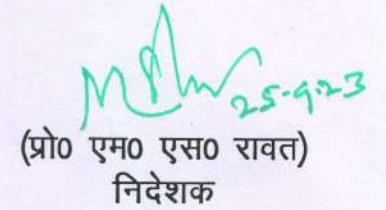 25-9-23
(प्रो0 एम0 एस0 रावत)
निदेशक